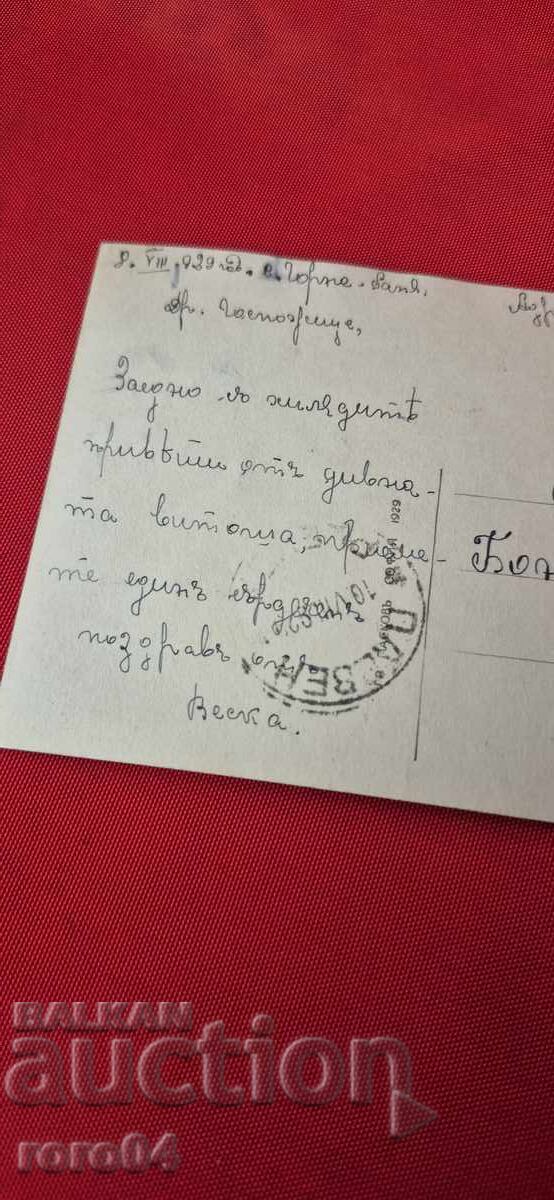 8. VIII. 929 год. с. Горна-баня.
Др. Госпожице,
Заедно съ хилядитѣ
привѣти отъ дивна-
та Витоша, приеме-
те единъ сърдеченъ
поздравъ отъ
Веска.
Бож
ПЛѢВЕН
1929
BALKAN
auction
roro04